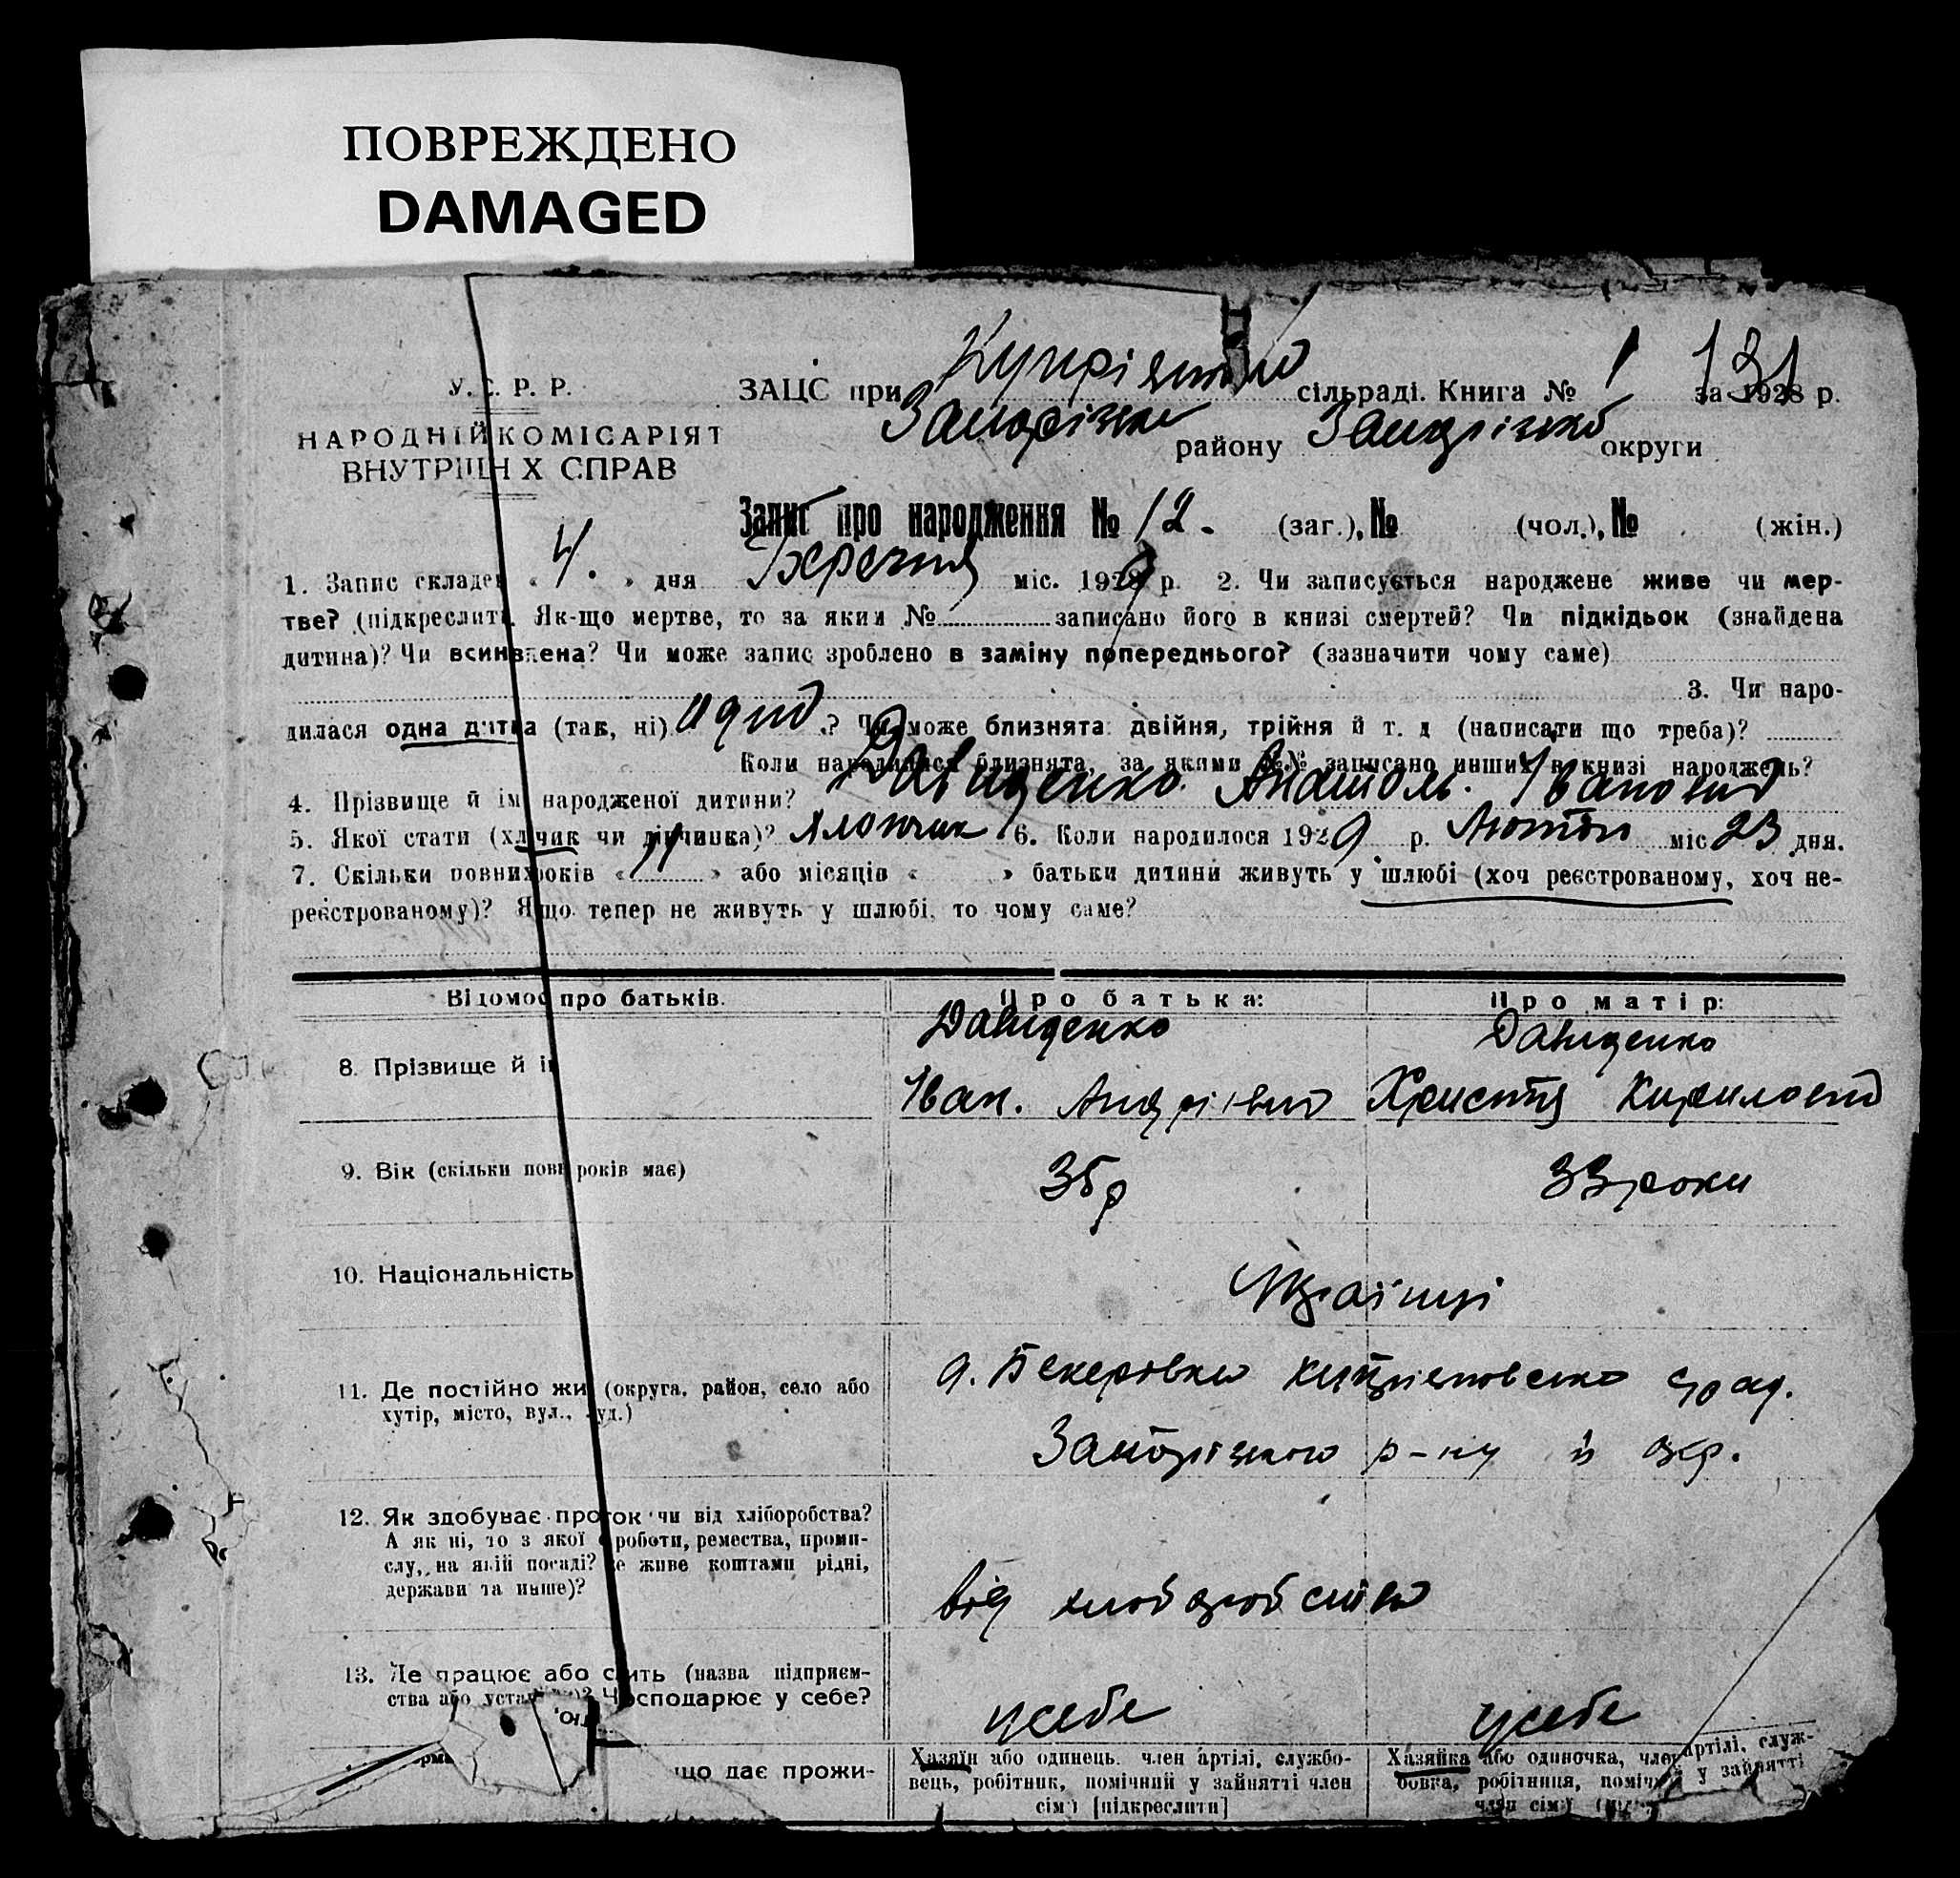 ПОВРЕЖДЕНО
DAMAGED
У. С. Р. Р.
НАРОДНІЙ КОМІСАРІЯТ
ВНУТРІШН Х СПРАВ
ЗАЦС при сільраді. Книга № 1 за 1928 р. 131
району округи
Запис про народження № 12. (заг.), № (чол.), № (жін.)
1. Запис складен « 4. » дня Березня міс. 1929 р. 2. Чи записується народжене живе чи мер-
тве? (підкреслить. Як-що мертве, то за яким № записано його в книзі смертей? Чи підкідьок (знайдена
дитина)? Чи всиновлена? Чи може запис зроблено в заміну попереднього? (зазначити чому саме)
3. Чи наро-
дилася одна дитина (так, ні) ? Чи може близнята: двійня, трійня й т. д (написати що треба)?
Коли народилися близнята, за якими №№ записано инших в книзі народжень?
4. Прізвище й ім народженої дитини? Давиденко Анатоль. Іванович
5. Якої стати (хлпчик чи дівчинка)? Хлопчик 6. Коли народилося 1929 р. Лютого міс 23 дня.
7. Скільки повних років « 14 » або місяців « » батьки дитини живуть у шлюбі (хоч реєстрованому, хоч не-
реєстрованому)? Якщо тепер не живуть у шлюбі, то чому саме?
Відомос про батьків. Про батька: Про матір:
8. Прізвище й ім Давиденко Давиденко
Іван. Андрієвич Христя Кириловна
9. Вік (скільки повн років має) 35 р 33 роки
10. Національність Українці
11. Де постійно жи (округа, район, село або
хутір, місто, вул., буд.)
Запорізького р-ну й окр.
12. Як здобуває прожиток чи від хліборобства?
А як ні, то з якої роботи, ремества, проми-
слу, на якій посаді? Це живе коштами рідні,
держави та инше)?
від хліборобства
13. Де працює або служить (назва підприєм-
ства або установи)? Чи господарює у себе?
усебе усебе
що дає прожи-
Хазяїн або одинець. член артілі, службо-
вець, робітник, помічний у зайнятті член
сім'ї [підкреслити]
Хазяйка або одиночка, член артілі, служ-
бовка, робітниця, поміч у зайнятті
член сім'ї